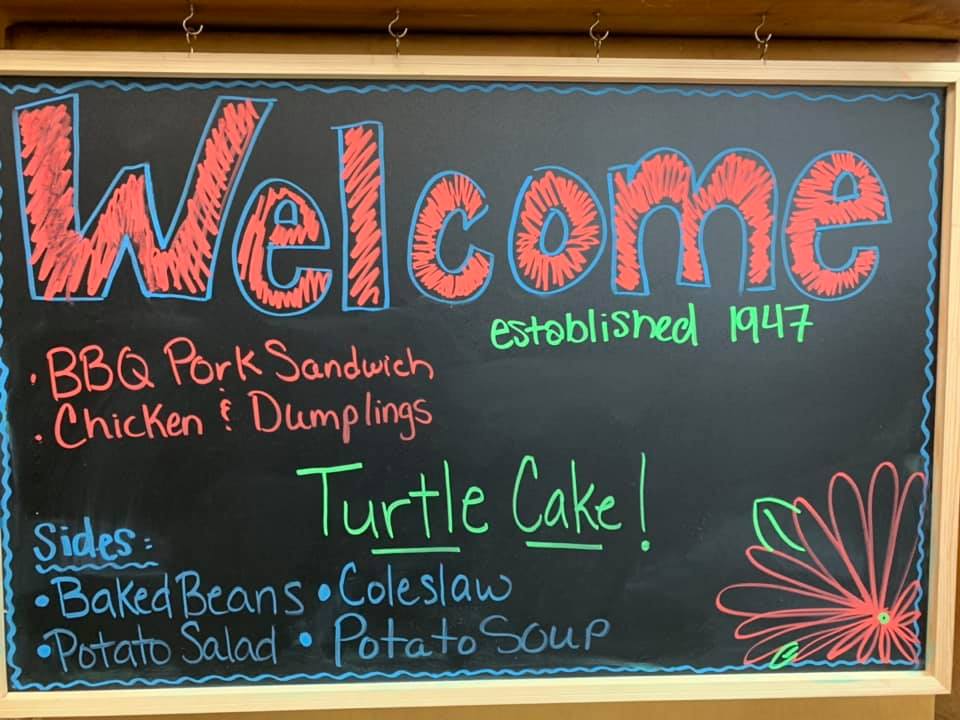 Welcome
established 1947
· BBQ Pork Sandwich
· Chicken & Dumplings
Turtle Cake!
Sides:
• Baked Beans • Coleslaw
• Potato Salad • Potato Soup